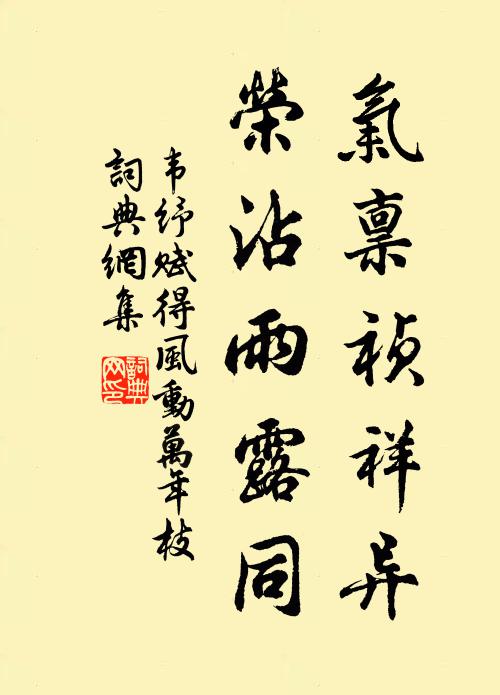 氣稟禎祥异
榮沾雨露同
韦纾赋得風動萬年枝
詞典網集
詞典网印